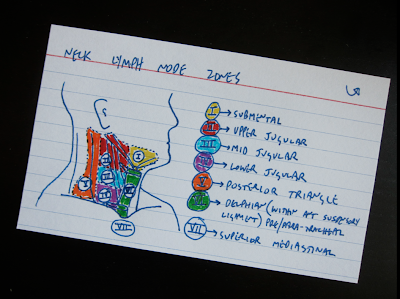 NECK LYMPH NODE ZONES
I → SUBMENTAL
II → UPPER JUGULAR
III → MID JUGULAR
IV → LOWER JUGULAR
V → POSTERIOR TRIANGLE
VI → DELPHIAN (WITHIN AT SUSPENSORY
LIGAMENT) PRE/PARA-TRACHEAL
VII → SUPERIOR MEDIASTINAL
I
II
V
III
IV
VII